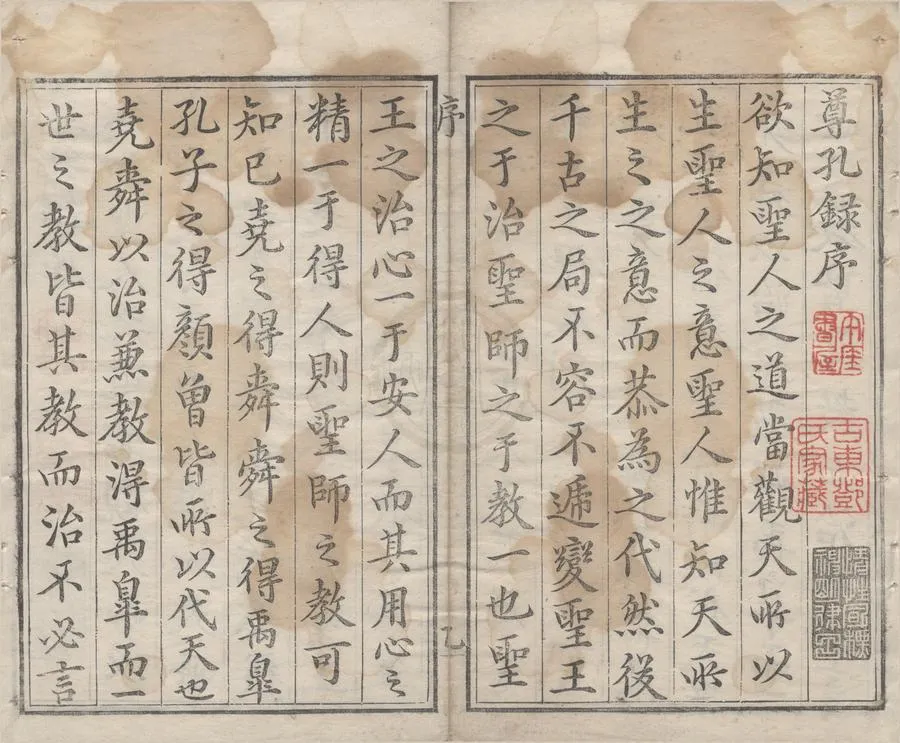 尊孔録序
欲知聖人之道當觀天所以
生聖人之意聖人惟知天所
生之之意而恭為之代然後
千古之局不容不遞變聖王
之于治聖師之于教一也聖
序
乙
王之治心一于安人而其用心之
精一于得人則聖師之教可
知已堯之得舜舜之得禹皐
孔子之得顏曾皆所以代天也
堯舜以治兼教得禹皐而一
世之教皆其教而治不必言
古東鄧
氏家藏